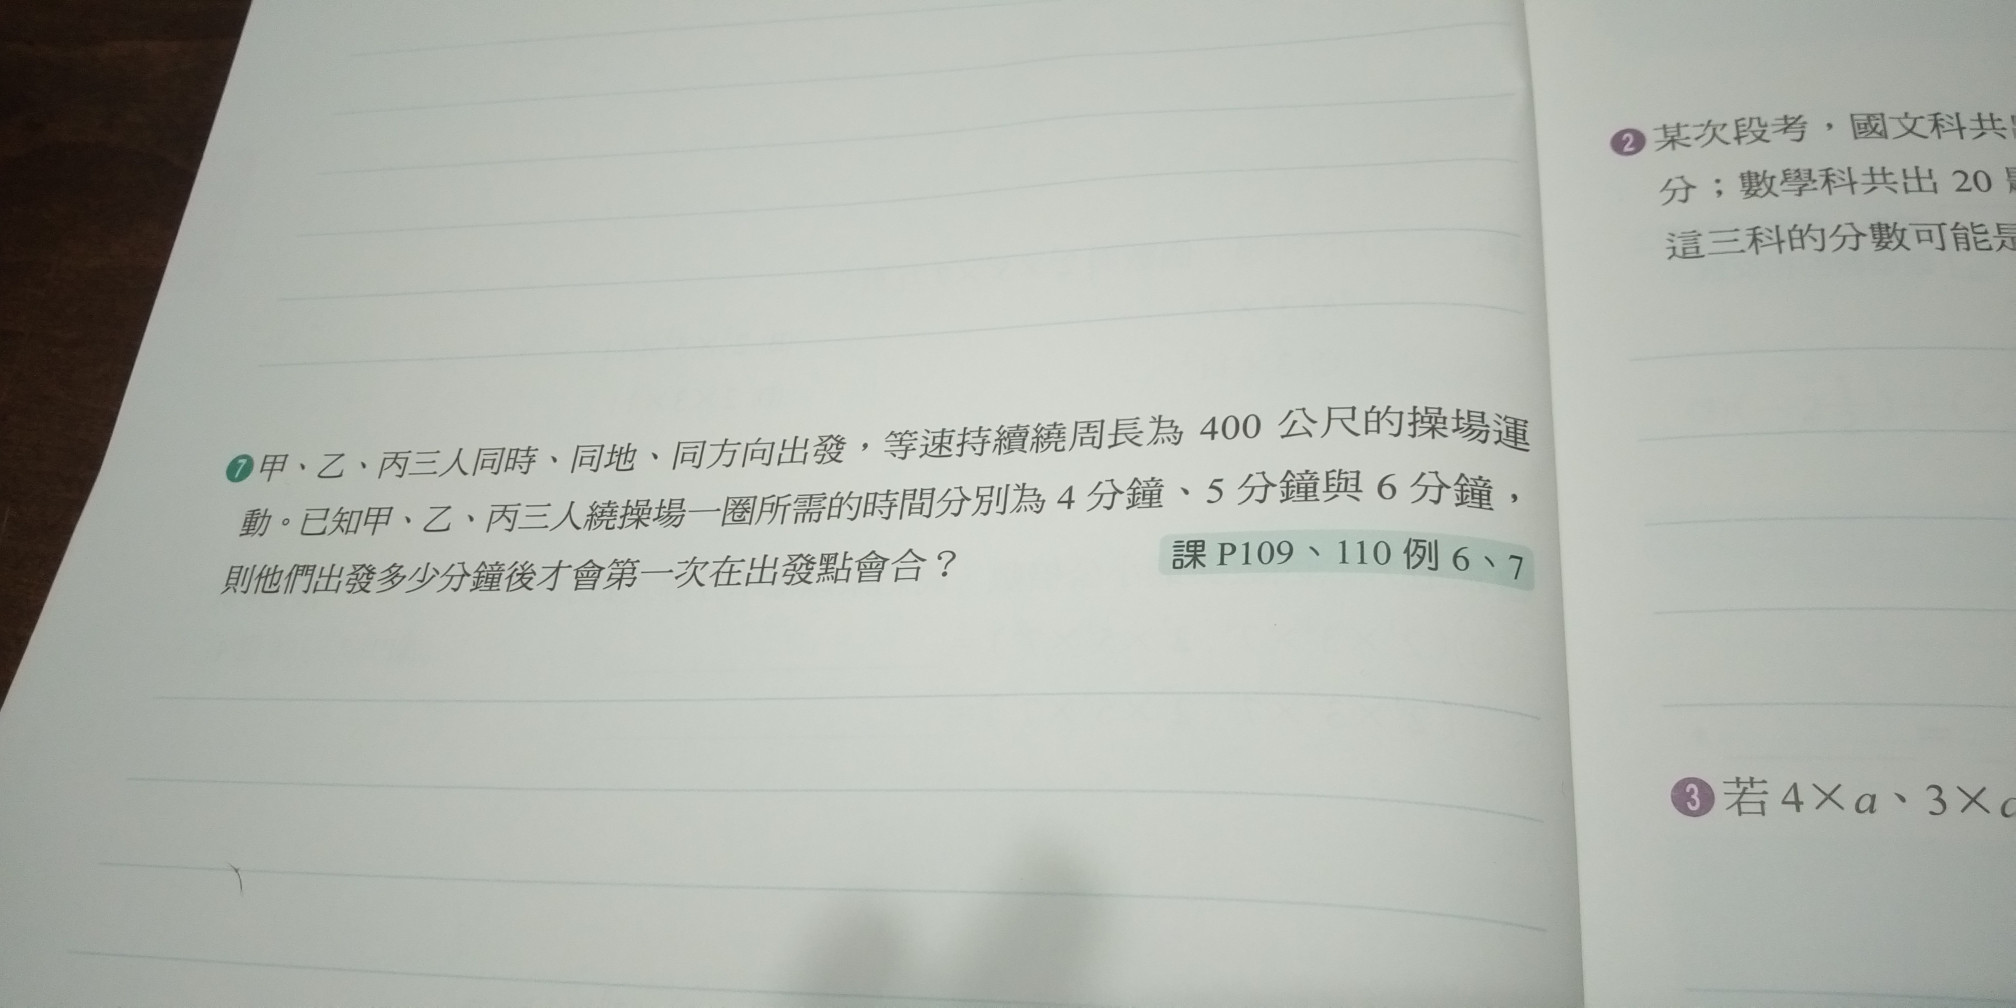 ❼甲、乙、丙三人同時、同地、同方向出發,等速持續繞周長為 400 公尺的操場運
動。已知甲、乙、丙三人繞操場一圈所需的時間分別為 4 分鐘、5 分鐘與 6 分鐘,
則他們出發多少分鐘後才會第一次在出發點會合?
課 P109、110 例 6、7
❷某次段考,國文科共
分;數學科共出 20
這三科的分數可能是
❸若 4×a、3×